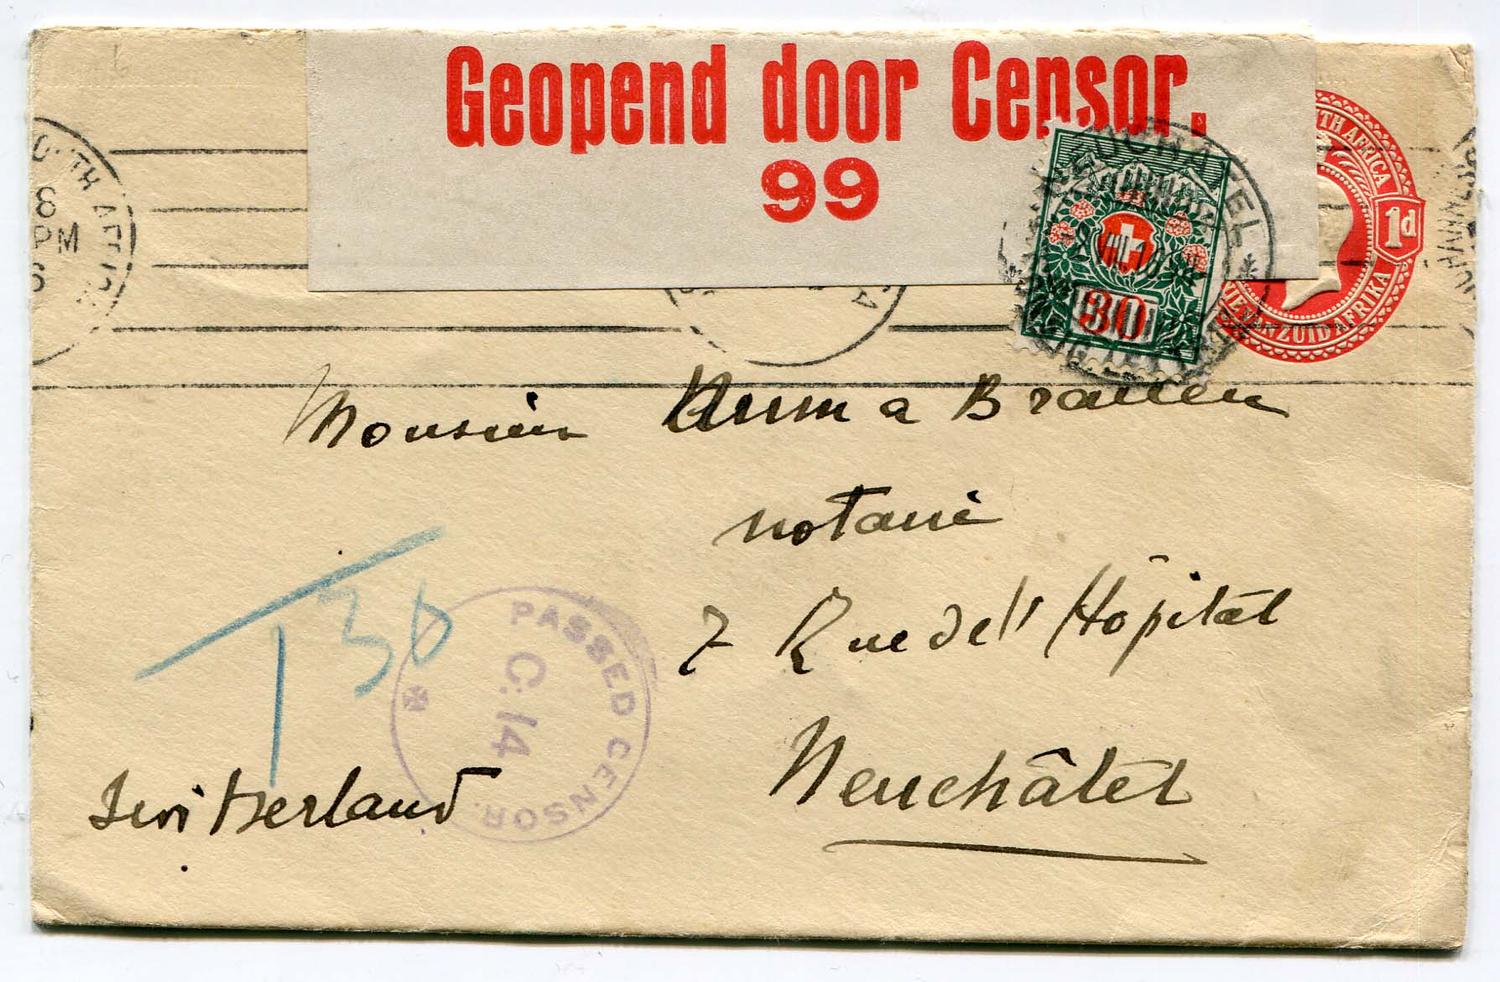 Geopend door Censor.
99
SOUTH AFRICA
8
PM
1d
TH AFRICA
VAN ZUID AFRIKA
NEUCHATEL
30
Monsieur Numa Brauen
notaire
7 Rue de l'Hôpital
Neuchâtel
Switzerland
T 30
PASSED CENSOR.
C.14